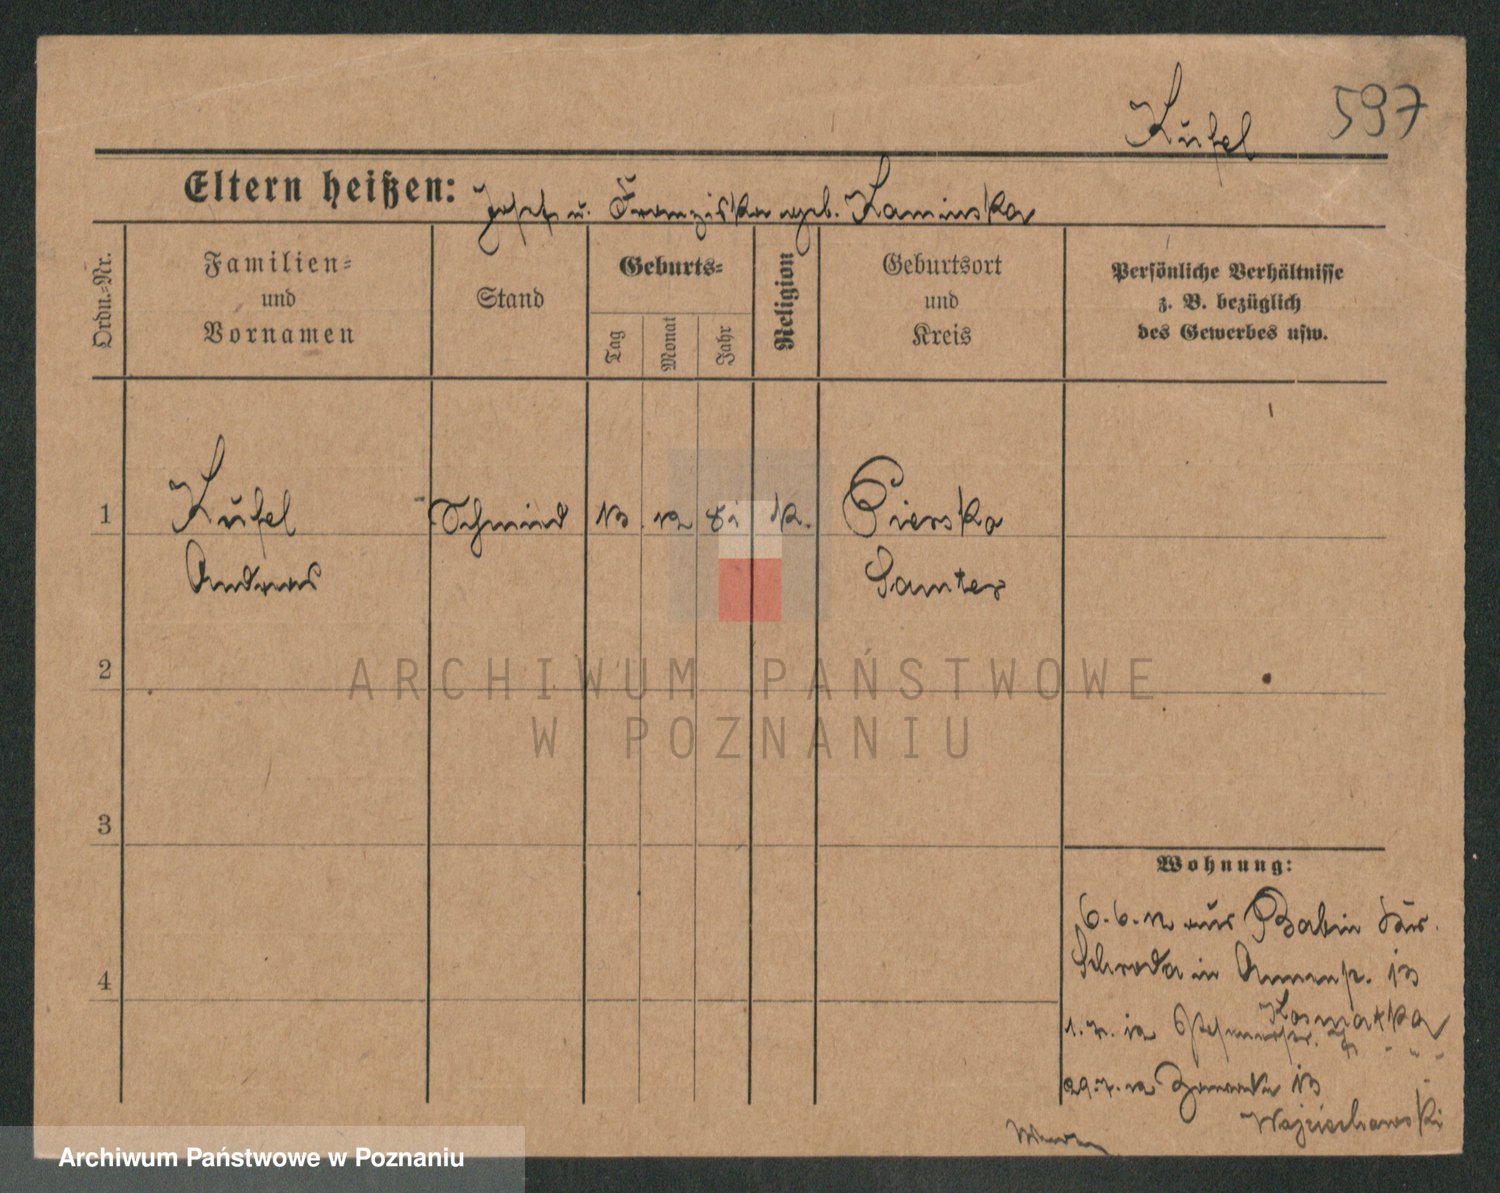 Kufel 597
Eltern heißen: Josef u. Franziska geb. Kaminska
Ordn.-Nr.
Familien- und Vornamen
Stand
Geburts-
Tag
Monat
Jahr
Religion
Geburtsort und Kreis
Persönliche Verhältnisse z. B. bezüglich des Gewerbes usw.
1 Kufel Schmied 13 12 81 k. Piersko
Andreas Samter
2
ARCHIWUM PAŃSTWOWE
W POZNANIU
3
Wohnung:
6.6.12 aus Babin Kr.
4 Schroda in Annenstr. 13
Kosmatka
1.7.12
29.7.12 13
Wojciechowski
Archiwum Państwowe w Poznaniu